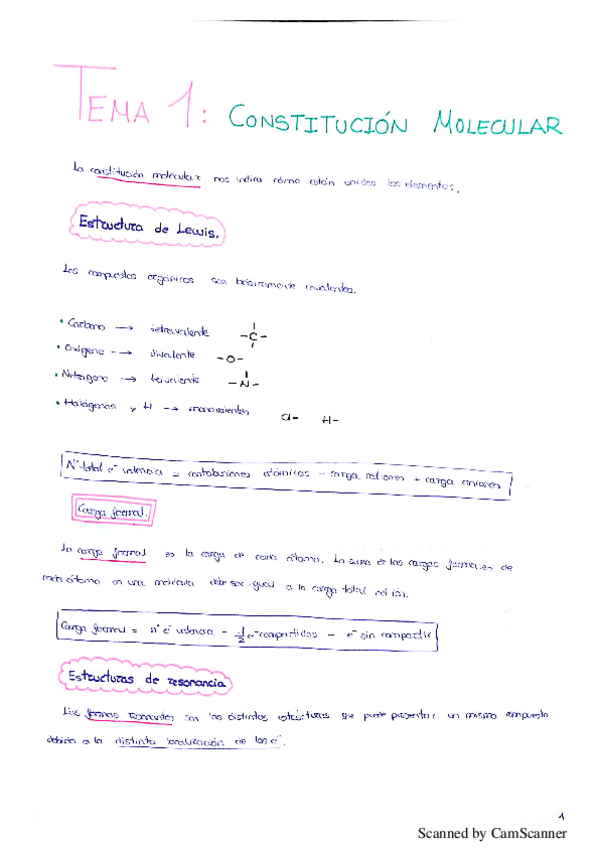 TEMA 1: CONSTITUCIÓN MOLECULAR
La constitución molecular nos indica cómo están unidos los elementos.
Estructura de Lewis.
Los compuestos orgánicos son básicamente covalentes.
• Carbono → tetravalente -C-
• Oxígeno → divalente -O-
• Nitrógeno → trivalente -N-
• Halógenos y H → monovalentes Cl- H-
Nº total e⁻ valencia = contribuciones atómicas - carga cationes + carga aniones
Carga formal.
La carga formal es la carga de cada átomo. La suma de las cargas formales de
cada átomo en una molécula debe ser igual a la carga total del ión.
Carga formal = nº e⁻ valencia - 1/2 e⁻ compartidos - e⁻ sin compartir
Estructuras de resonancia
Las formas resonantes son las distintas estructuras que puede presentar un mismo compuesto
debido a la distinta localización de los e⁻.
1
Scanned by CamScanner